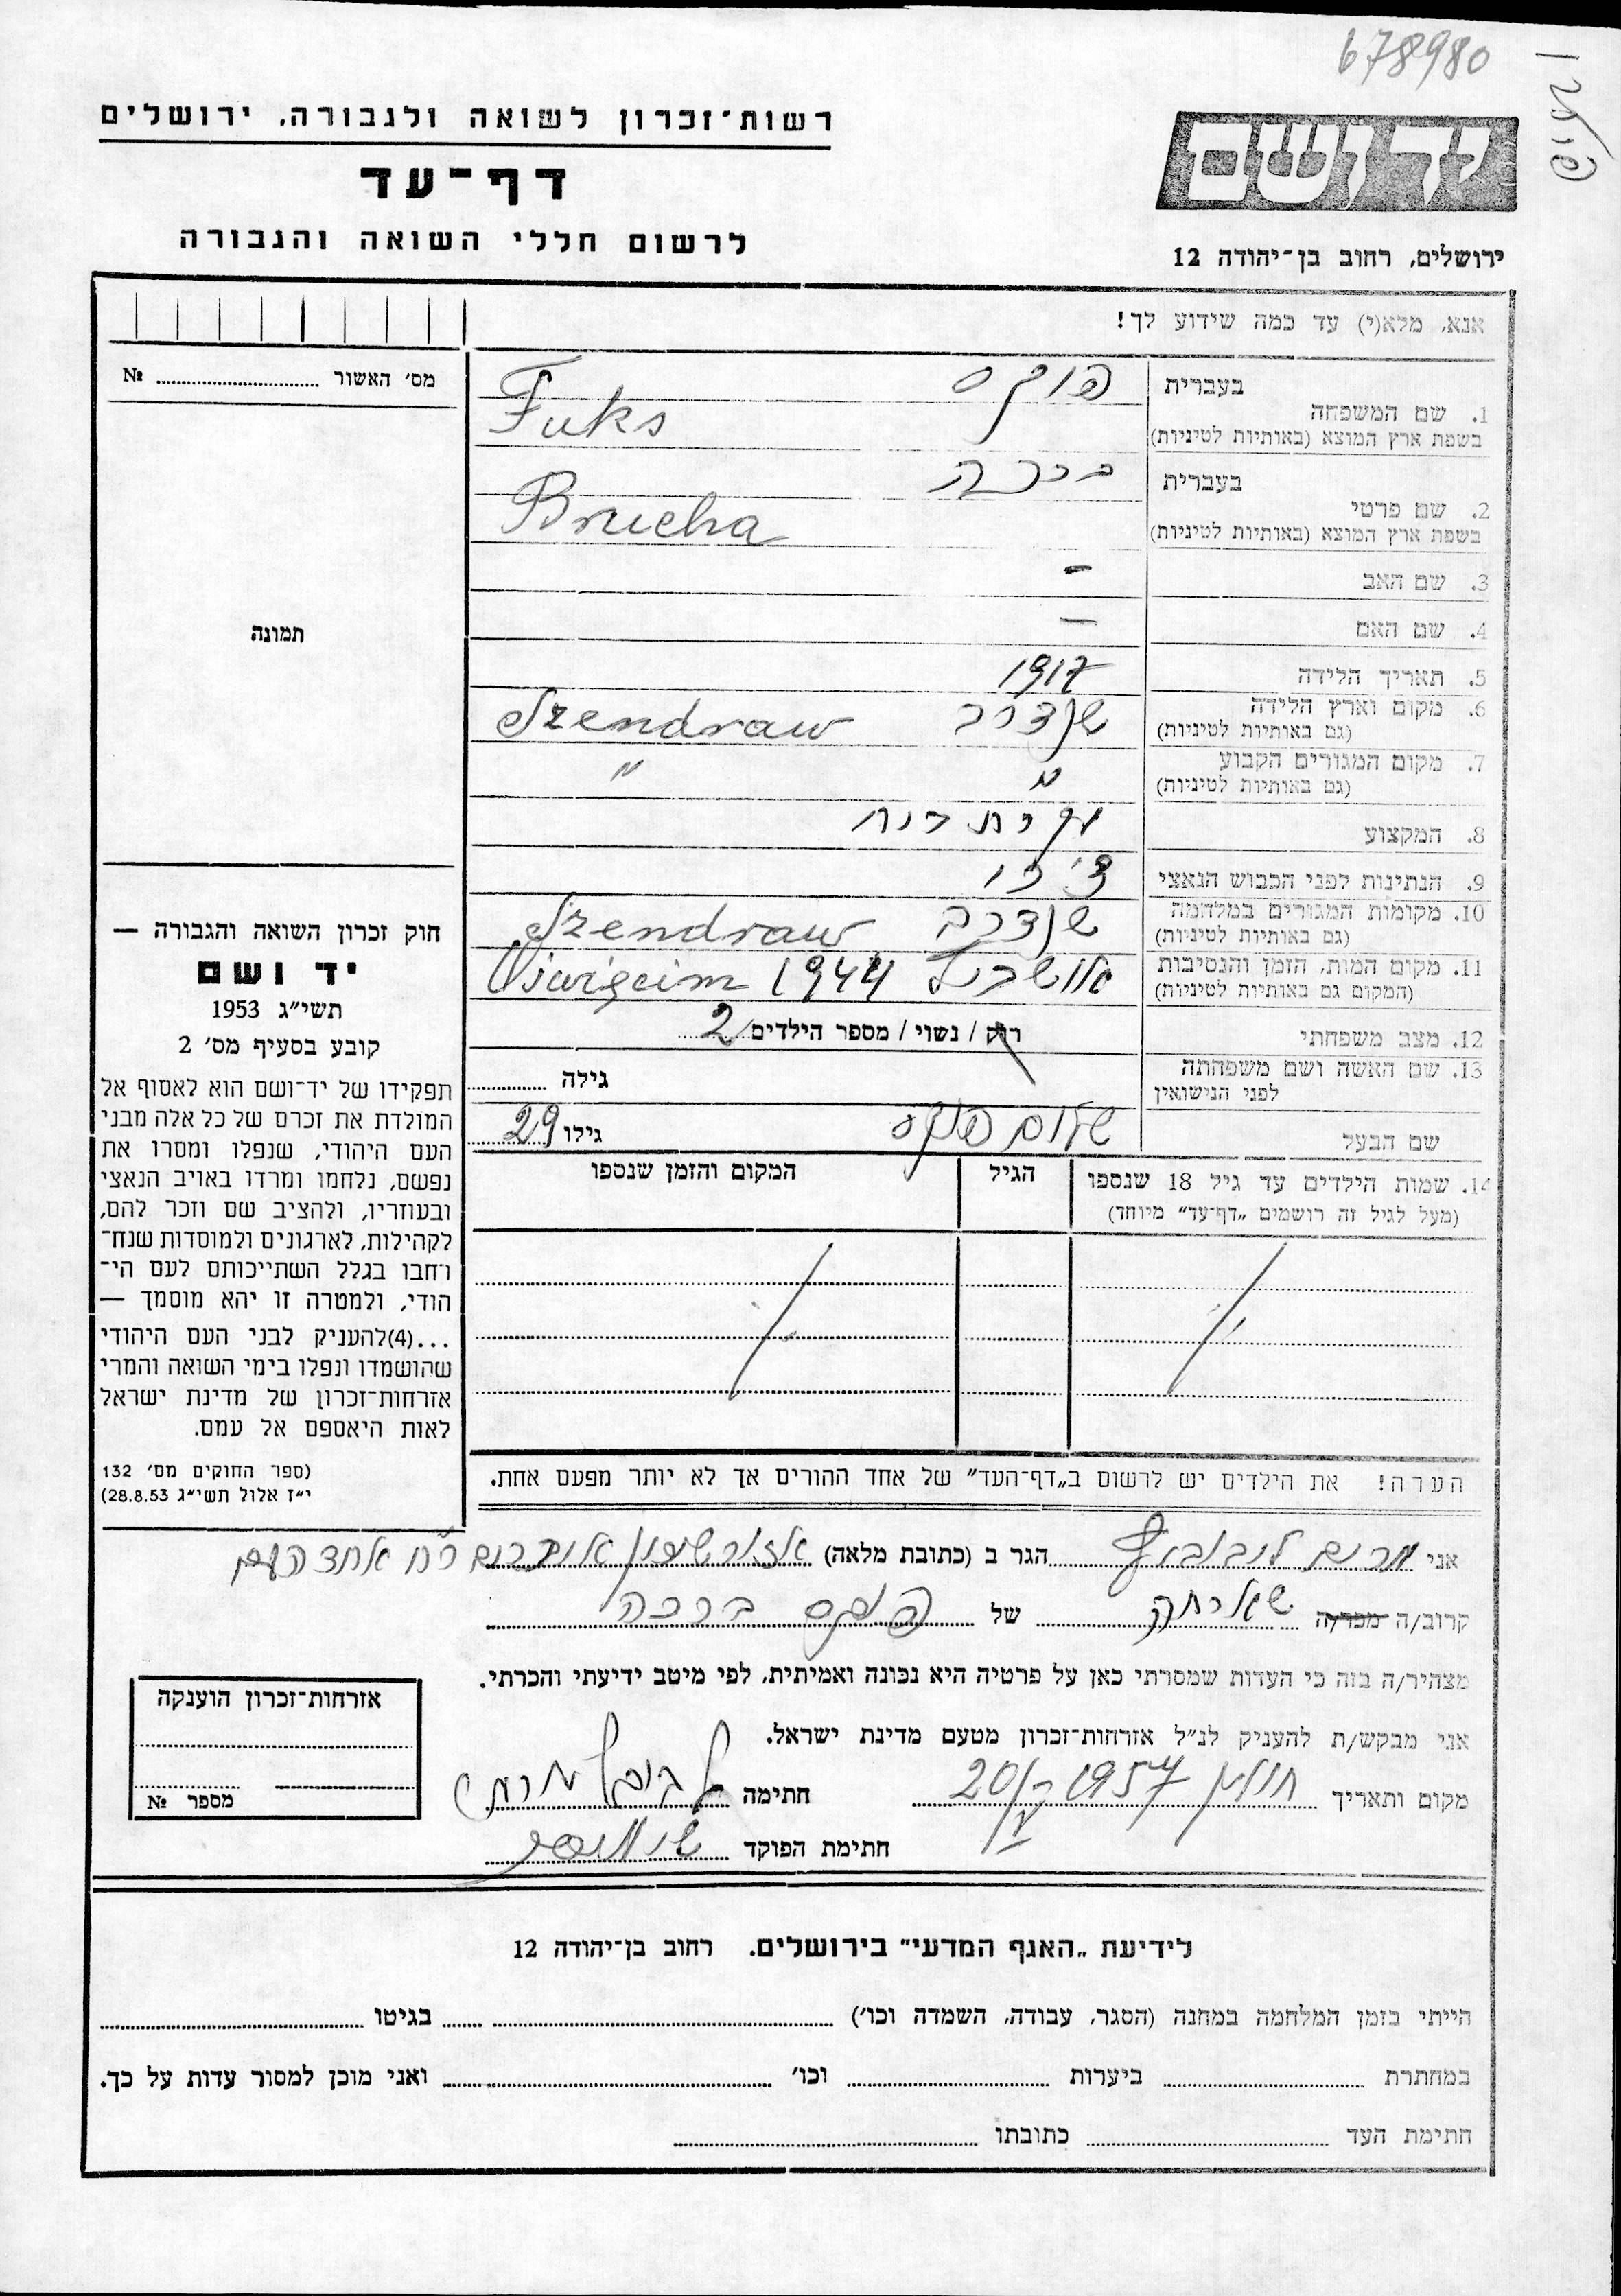 678980
רשות־זכרון לשואה ולגבורה, ירושלים
דף־עד
לרשום חללי השואה והגבורה
יד ושם
ירושלים, רחוב בן־יהודה 12
אנא, מלא(י) עד כמה שידוע לך!
מס׳ האשור № 
תמונה
חוק זכרון השואה והגבורה —
יד ושם
תשי״ג 1953
קובע בסעיף מס׳ 2
תפקידו של יד־ושם הוא לאסוף אל
המולדת את זכרם של כל אלה מבני
העם היהודי, שנפלו ומסרו את
נפשם, נלחמו ומרדו באויב הנאצי
ובעוזריו, ולהציב שם וזכר להם,
לקהילות, לארגונים ולמוסדות שנח־
רבו בגלל השתייכותם לעם הי־
הודי, ולמטרה זו יהא מוסמך —
...(4)להעניק לבני העם היהודי
שהושמדו ונפלו בימי השואה והמרי
אזרחות־זכרון של מדינת ישראל
לאות היאספם אל עמם.
(ספר החוקים מס׳ 132
י״ז אלול תשי״ג 28.8.53)
1. שם המשפחה בעברית פוקס
בשפת ארץ המוצא (באותיות לטיניות) Fuks
2. שם פרטי בעברית ברכה
בשפת ארץ המוצא (באותיות לטיניות) Brucha
3. שם האב -
4. שם האם —
5. תאריך הלידה 1917
6. מקום וארץ הלידה Szendraw
(גם באותיות לטיניות)
7. מקום המגורים הקבוע " "
(גם באותיות לטיניות)
8. המקצוע עקרת בית
9. הנתינות לפני הכבוש הנאצי
10. מקומות המגורים במלחמה Szendraw
(גם באותיות לטיניות)
11. מקום המות, הזמן והנסיבות 1944
(המקום גם באותיות לטיניות)
12. מצב משפחתי רוק / נשוי / מספר הילדים 2
13. שם האשה ושם משפחתה
לפני הנישואין גילה
שם הבעל שלום פוקס גילו 29
14. שמות הילדים עד גיל 18 שנספו
(מעל לגיל זה רושמים „דף־עד״ מיוחד)
הגיל
המקום והזמן שנספו
הערה! את הילדים יש לרשום ב„דף־העד״ של אחד ההורים אך לא יותר מפעם אחת.
אני מרים הגר ב (כתובת מלאה) אחד העם
קרוב/ה מכר/ה של פוקס ברכה
מצהיר/ה בזה כי העדות שמסרתי כאן על פרטיה היא נכונה ואמיתית, לפי מיטב ידיעתי והכרתי.
אני מבקש/ת להעניק לנ״ל אזרחות־זכרון מטעם מדינת ישראל.
מקום ותאריך חולון 20/V 1957 חתימה
חתימת הפוקד
אזרחות־זכרון הוענקה
מספר №
לידיעת „האגף המדעי״ בירושלים. רחוב בן־יהודה 12
הייתי בזמן המלחמה במחנה (הסגר, עבודה, השמדה וכו׳) בגיטו
במחתרת ביערות וכו׳ ואני מוכן למסור עדות על כך.
חתימת העד כתובתו